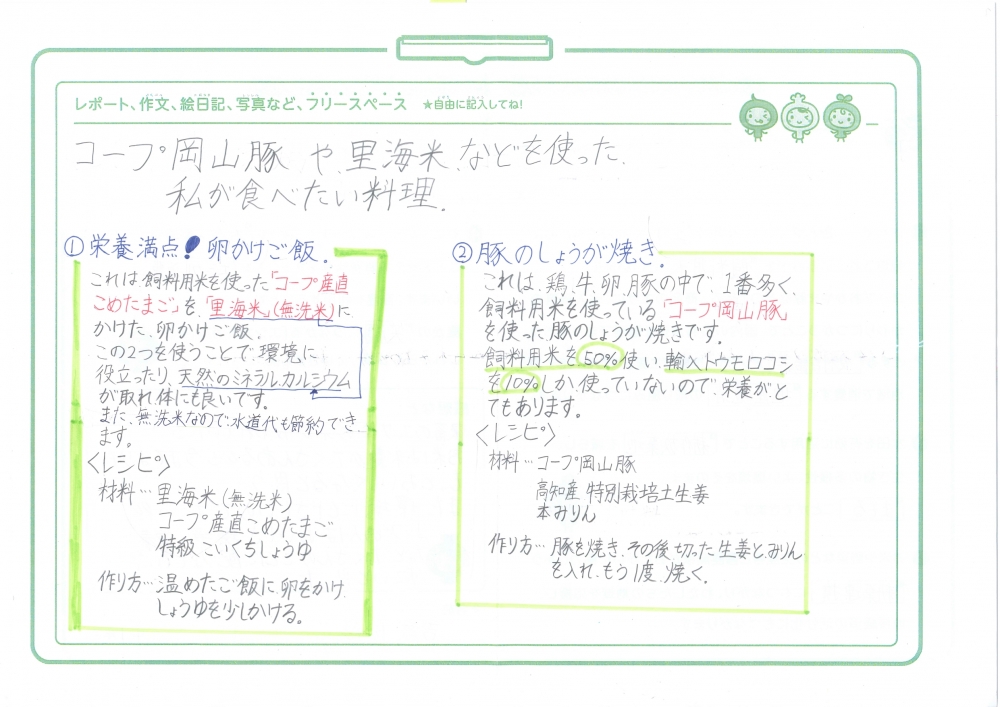 レポート、作文、絵日記、写真など、フリースペース ★自由に記入してね!
コープ岡山豚や、里海米、などを使った、
私が食べたい料理。
①栄養満点!卵かけご飯。
これは、飼料用米を使った「コープ産直
こめたまご」を、「里海米」(無洗米)に
かけた、卵かけご飯。
この2つを使うことで、環境に
役立ったり、天然のミネラル、カルシウム
が取れ体にも良いです。
また、無洗米なので、水道代も節約でき
ます。
〈レシピ〉
材料…里海米(無洗米)
コープ産直こめたまご
特級こいくちしょうゆ
作り方…温めたご飯に、卵をかけ、
しょうゆを少しかける。
②豚のしょうが焼き。
これは、鶏、牛、卵、豚の中で、1番多く、
飼料用米を使っている「コープ岡山豚」
を使った、豚のしょうが焼きです。
飼料用米を50%使い、輸入トウモロコシ
を10%しか、使っていないので、栄養がと
てもあります。
〈レシピ〉
材料…コープ岡山豚
高知産 特別栽培土生姜
本みりん
作り方…豚を焼き、その後、切った生姜と、みりん
を入れ、もう1度、焼く。